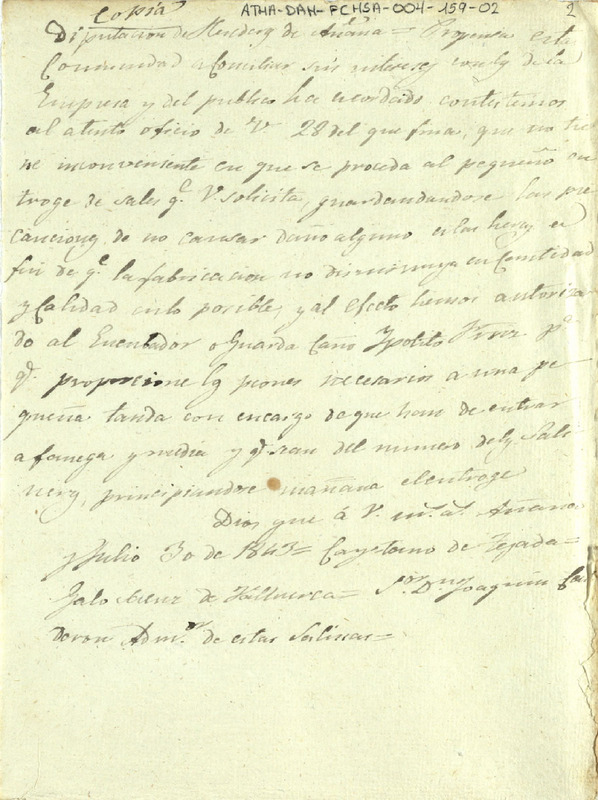 ATHA-DAH-FCHSA-004-159-02
2
Copia
Diputacion de Herederos de Añana = Propensa esta
Comunidad a Conciliar sus intereses con los de la
Empresa y del publico ha acordado contestemos
al atento oficio de V. 28 del que fina, que no tie
ne inconveniente en que se proceda al pequeño en
troge de sales qe. V. solicita, guardandose las pre
cauciones de no causar daño alguno en las heras a
fin de qe. la fabricacion no disminuya en Cantidad
y Calidad en lo posible, y al efecto hemos autoriza
do al Encelador o Guarda Cano Ypolito pa.
qe. proporcione los peones necesarios a una pe
queña tanda con encargo de que han de entrar
a fanega y media y qe. sean del numero de los Sali
neros, principiandose mañana el entroge
Dios gue. á V. ms. as. Añana
y Julio 30 de 1843 = Cayetano de Tejada =
de Villuerca = Sor. Dn. Joaquin
Admor. de estas Salinas =